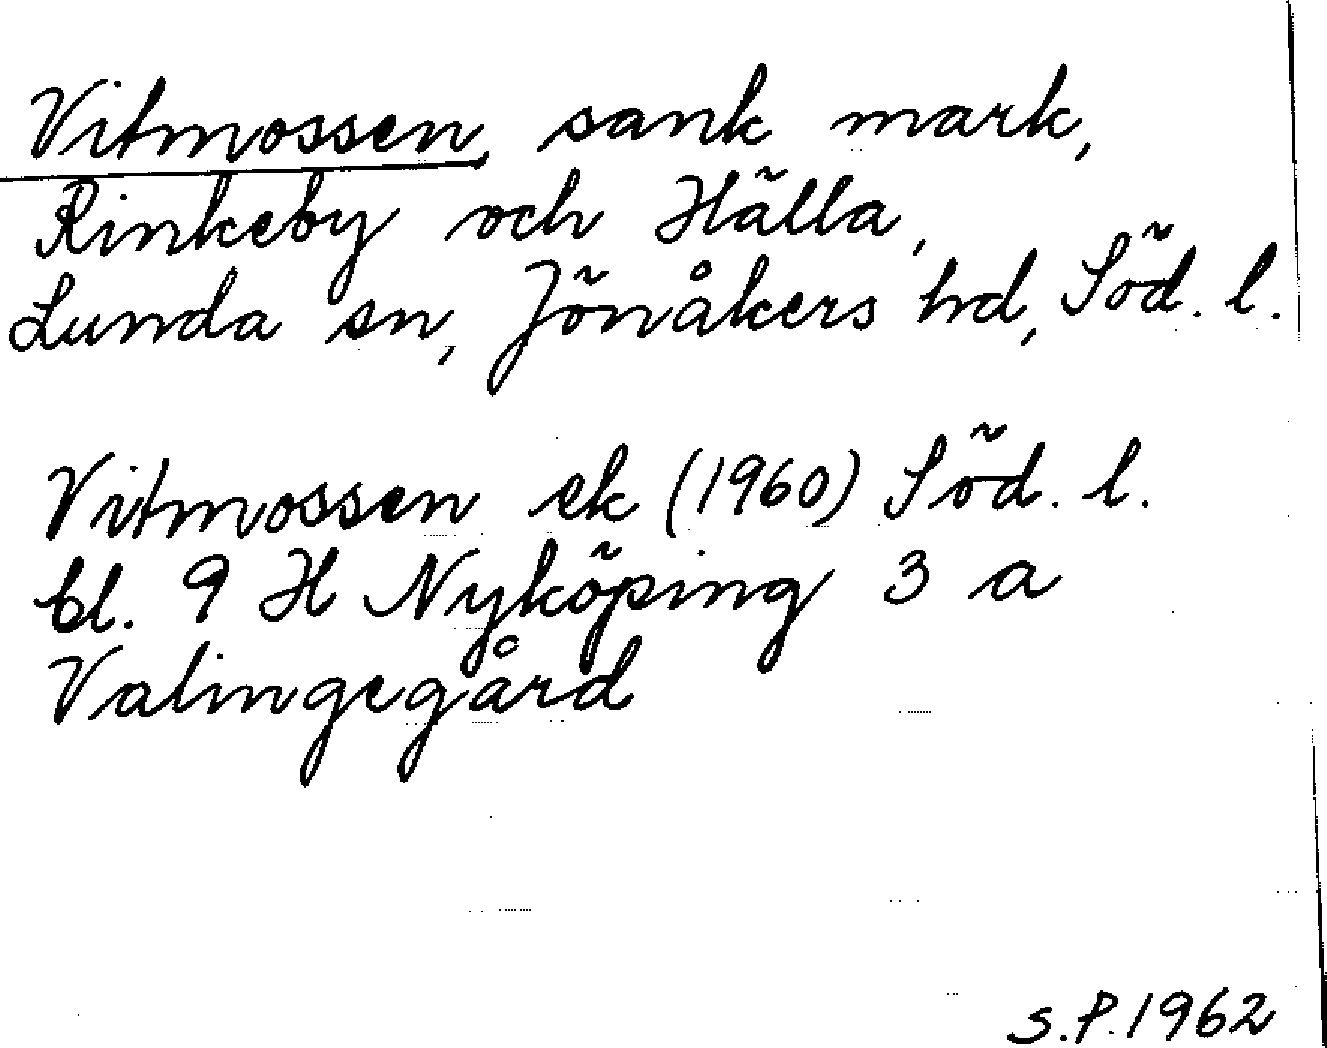 Vitmossen, sank mark,
Rinkeby och Hälla,
Lunda sn, Jönåkers hd, Söd. l.
Vitmossen ek (1960) Söd. l.
bl. 9 H Nyköping 3 a
Valingegård
S.P. 1962